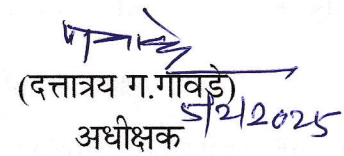 (दत्तात्रय ग.गावडे)
5/2/2025
अधीक्षक